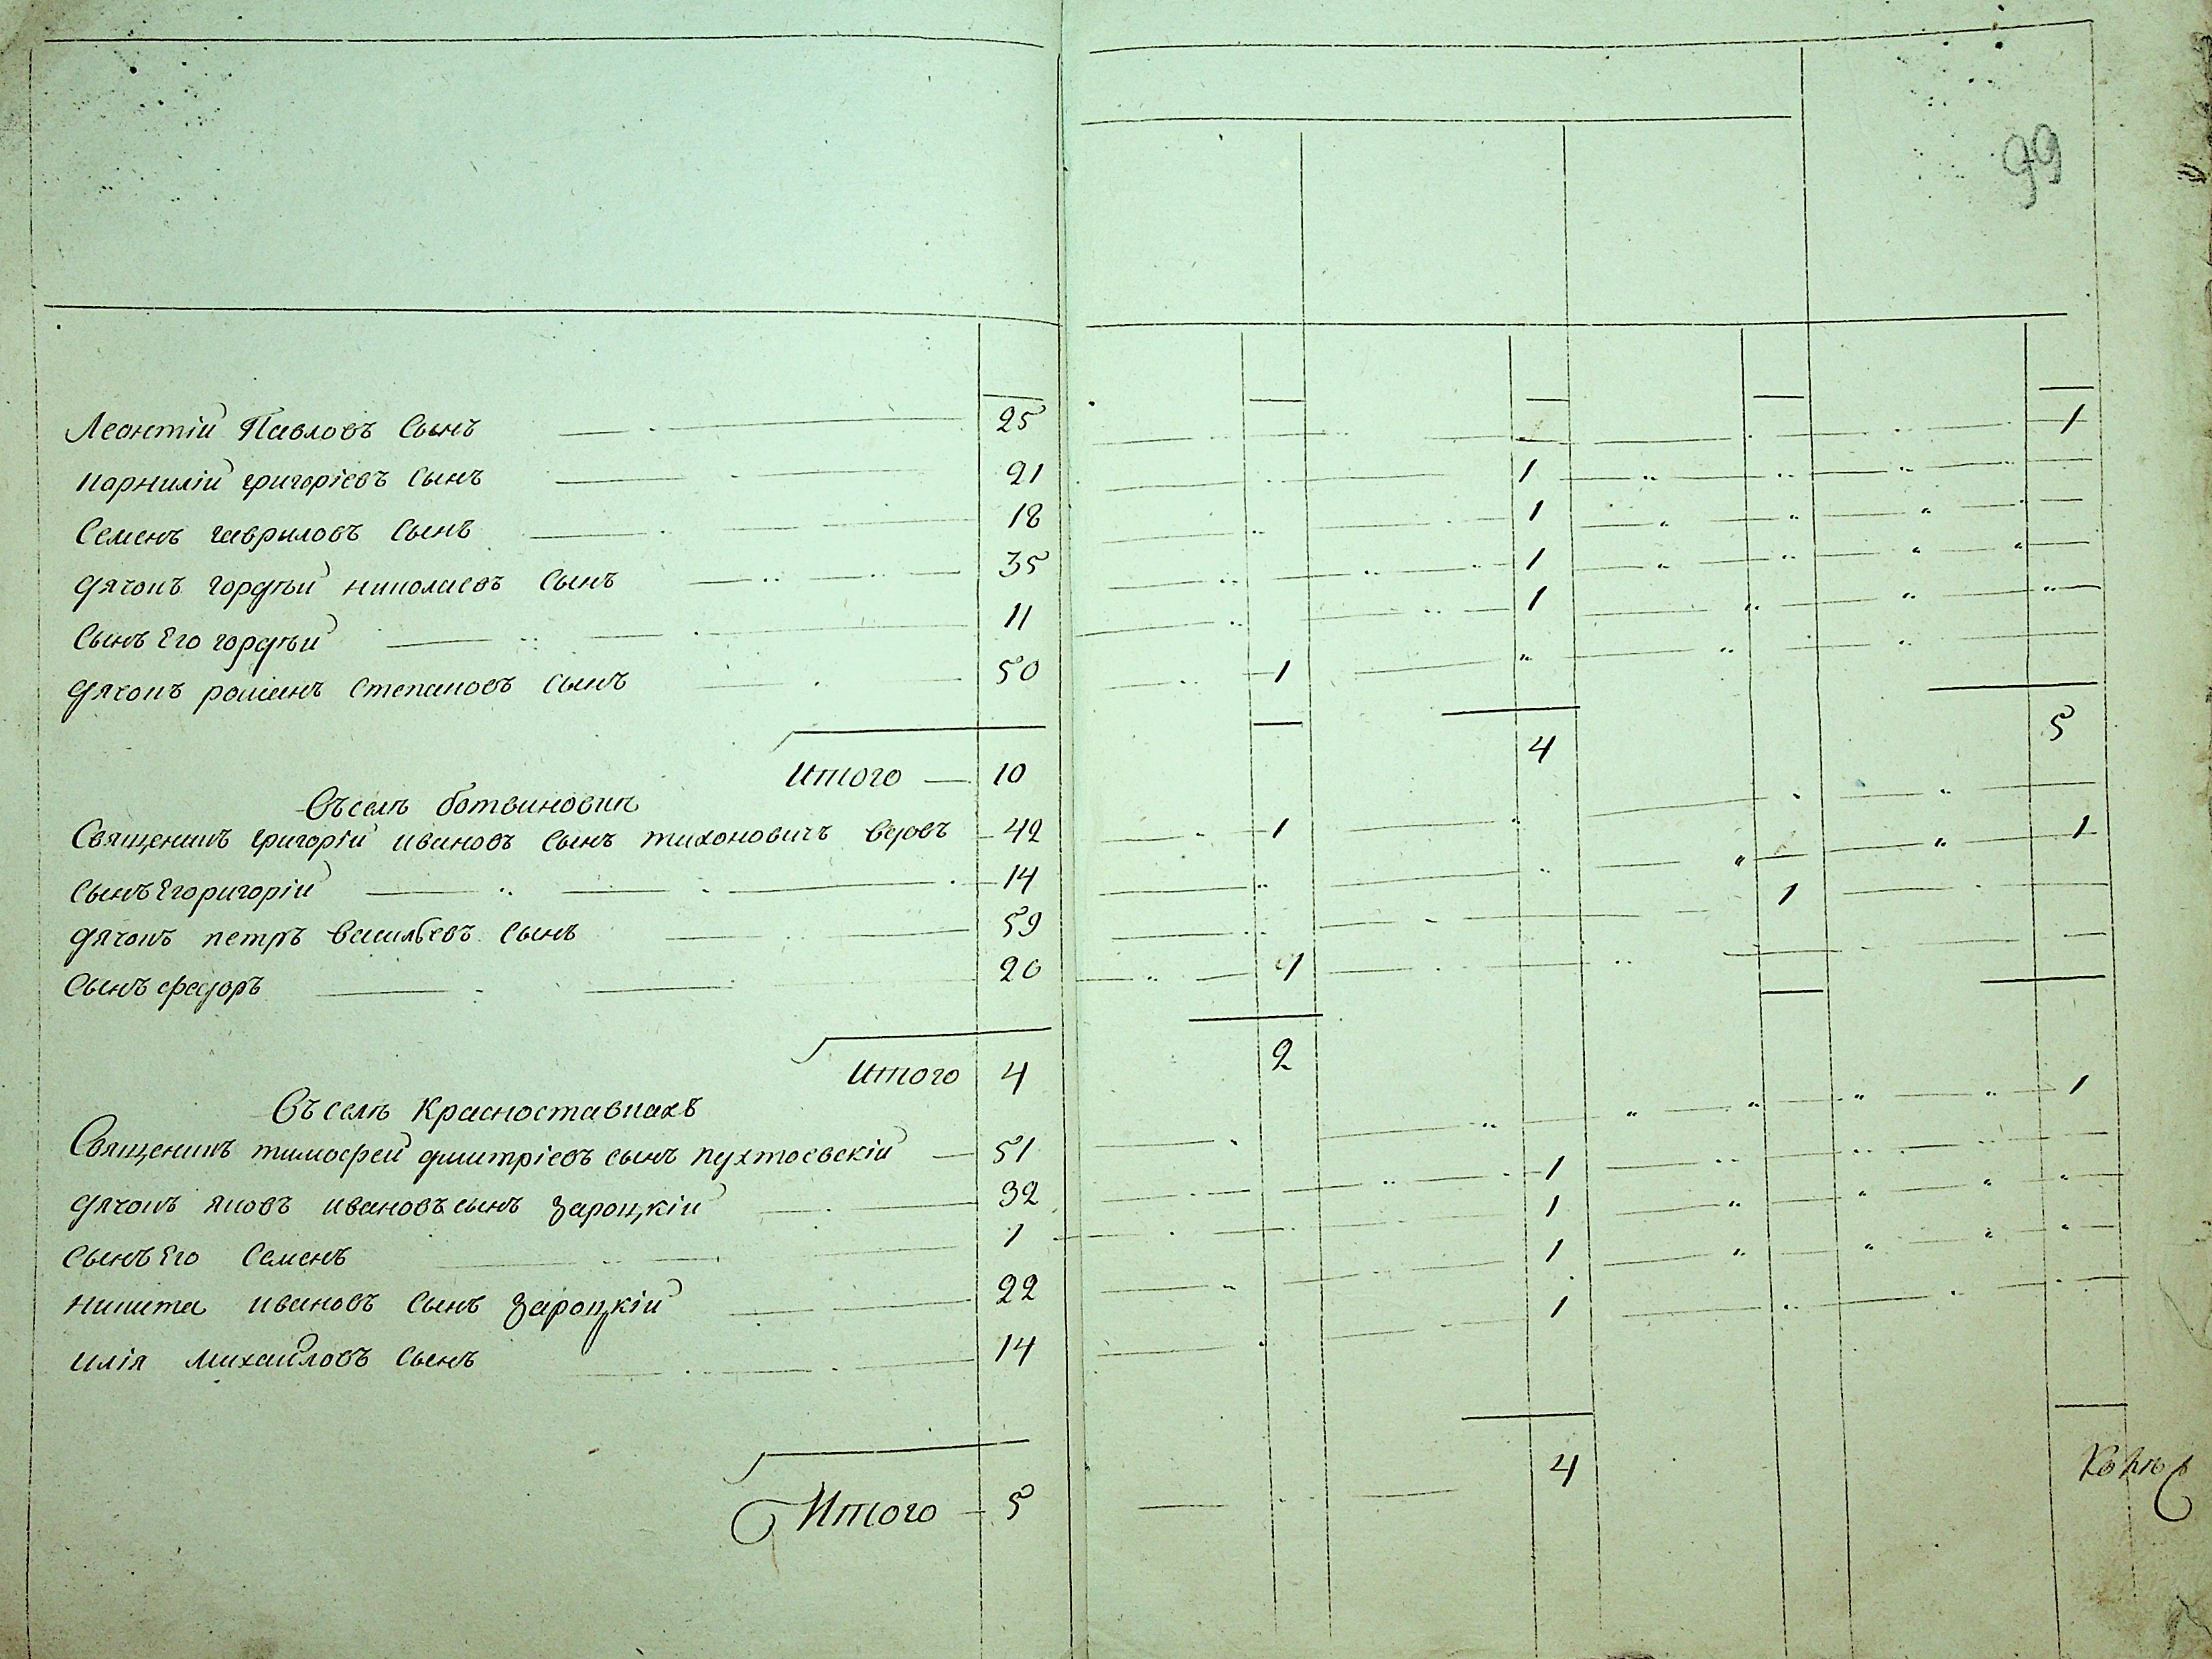 99
Леонтій Павловъ Сынъ 25 1
Карнилій григоріевъ Сынъ 21 1
Семенъ гавриловъ Сынъ 18 1
дячокъ гордѣй николаевъ Сынъ 35 1
Сынъ Его гордѣй 11 1
дячокъ романъ Степановъ Сынъ 50 1
Итого 10 4 5
Въ селѣ ботвиновкѣ
Священикъ григорій ивановъ Сынъ тихоновичъ вдовъ 42 1 1
Сынъ Егоригорій 14 1
дячокъ петръ васильевъ Сынъ 59
Сынъ федоръ 20 1
Итого 4 2
Въ селѣ Красноставкахъ
Священикъ тимофей дмитріевъ сынъ пухтаевскій 51 1
дячокъ яковъ ивановъ сынъ Зароцкій 32 1
Сынъ Его Семенъ 1 1
никита ивановъ Сынъ Зароцкій 22 1
илія михайловъ Сынъ 14 1
Итого 5 4